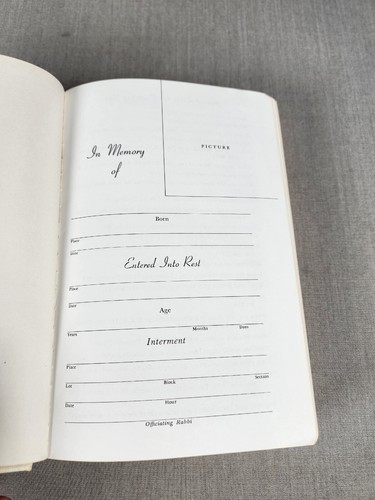 In Memory
of
PICTURE
Born
Place
Date
Entered Into Rest
Place
Date
Age
Years Months Days
Interment
Place
Lot Block Section
Date Hour
Officiating Rabbi